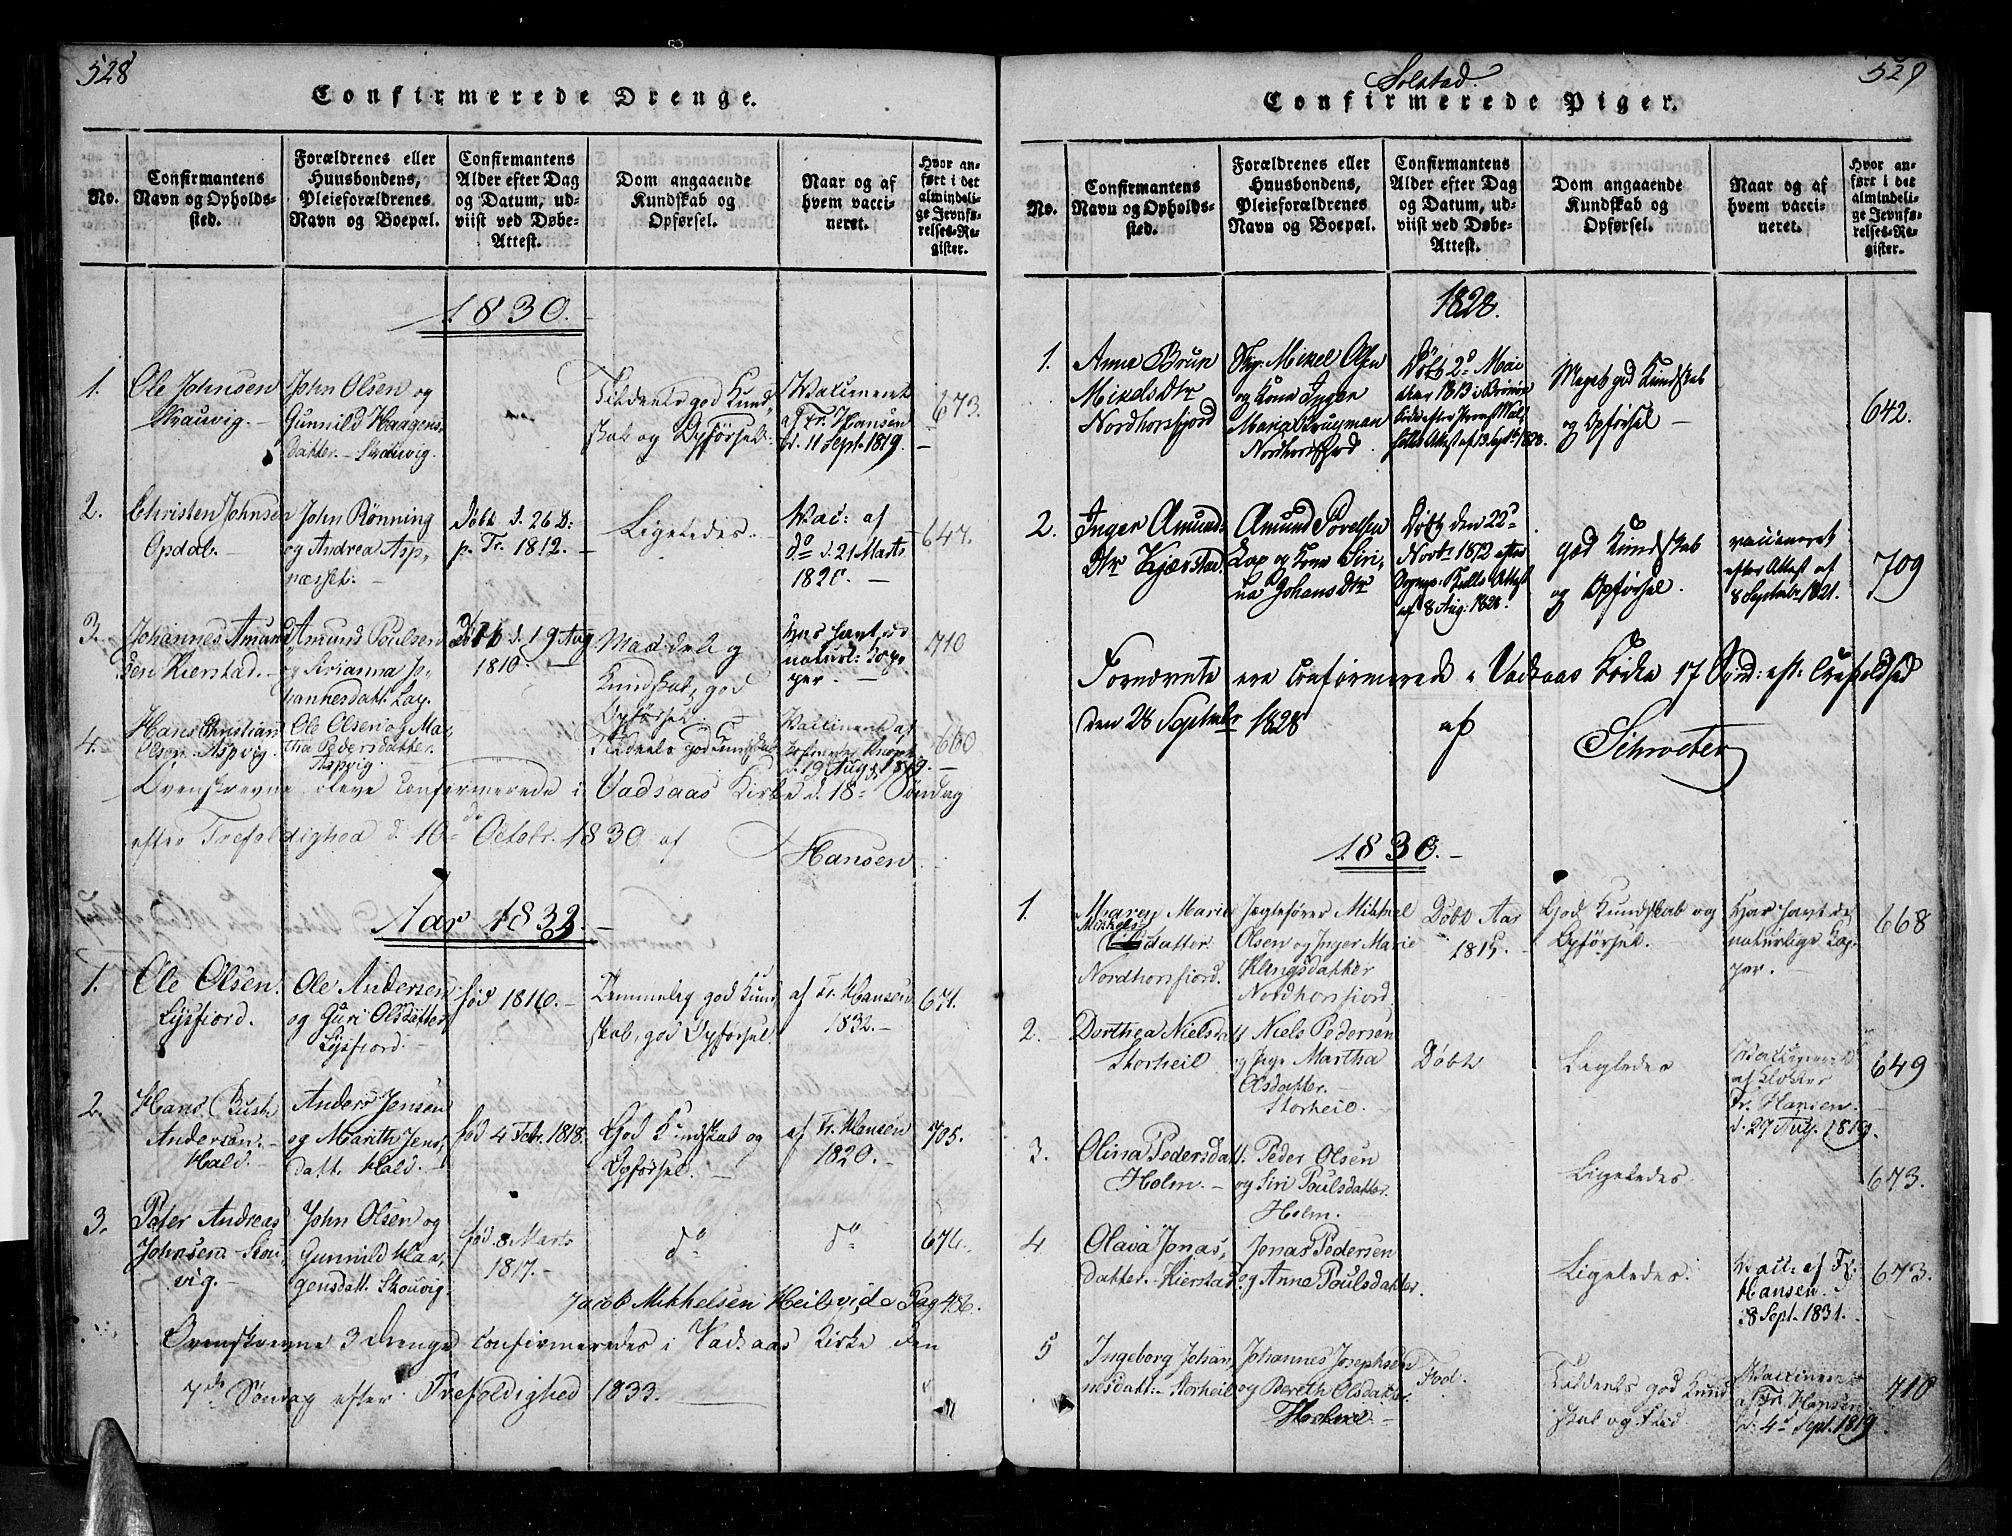 528
Confirmerede Drenge.
No.
Confirmantens
Navn og Opholds-
sted.
Forældrenes eller
Huusbondens,
Pleieforældrenes
Navn og Boepæl.
Confirmantens
Alder efter Dag
og Datum, ud-
viist ved Døbe-
Attest.
Dom angaaende
Kundskab og
Opførsel.
Naar og af
hvem vacci-
neret.
Hvor an-
ført i det
almindeli-
ge Jevnfø-
relses-Re-
gister.
1830.
1.
Ole Johnsen
Skauvig.
John Olsen og
Gunnild Haagens
datter. - Skauvig.
Tildeels god Kund,
skab og Opførsel.
Vaccineret
af Fr. Hansen
d. 11 Sept. 1819.
673.
2.
Christen Johnsen
Opdal.
John Rønning
og Andrea Asp,
næsset.
Døbt d. 26 D:
p. Tr. 1812.
Ligeledes.
Vac: af
do d. 21 Marts
1820.
647.
3.
Johannes Amund
sen Kierstad.
Amund Poulsen
og Sirianna Jo,
hannesdatt. Lap.
Døbt d. 19 Aug
1810.
Maadel. g
Kundskab, god
Opførsel.
Har havt de
naturl: Kop,
per.
710
4.
Hans Christian
Olsen Aspvig.
Ole Olsen og Mar
tha Pedersdatter.
Aspvig.
Tildeels god Kundskab
Vaccineret af
d. 19 Aug 1819.
660
Ovenskrevne bleve Confirmerede i Vadsaas Kirke d. 18de Søndag
efter Trefoldighed d. 10de Octobr. 1830 af
Hansen
Aar 1833.
1.
Ole Olsen.
Lysfiord.
Ole Andersen
og Guri Olsdatter
Lysfiord.
fød 1816.
Temmelig god Kund
skab, god Opførsel
af Fr. Hansen
1832.
671.
2.
Hans Busk
Andersen.
Hald.
Anders Jensen
og Marith Jens,
datt. Hald.
fød 4 Febr. 1818.
God Kundskab og
Opførsel.
af Fr. Hansen
1820.
705.
3.
Peter Andreas
Johnsen. Skou,
vig.
John Olsen og
Gunnild Haa,
gensdatt. Skouvig.
fød. 8 Marts
1817.
do
do
676.
Jacob Mikkelsen Heilsvide Pag 486.
Ovenskrevne 3 drenge confirmeredes i Vadsaas Kirke den
7de Søndag efter Trefoldighed 1833.
529
Solstad.
Confirmerede Piger.
No.
Confirmantens
Navn og Opholds-
sted.
Forældrenes eller
Huusbondens,
Pleieforældrenes
Navn og Boepæl.
Confirmantens
Alder efter Dag
og Datum, ud-
viist ved Døbe-
Attest.
Dom angaaende
Kundskab og
Opførsel.
Naar og af
hvem vacci-
neret.
Hvor an-
ført i det
almindeli-
ge Jevnfø-
relses-Re-
gister.
1828.
1.
Anne Brun
Mikels Dtr
Nordhorsfjord
Mikel Olsen
og Kone Inger
Maria Kruyman
Nordhorsfjord
Døbt 2d Mai
Aar 1813
Attest af 13 Septbr 1828.
Meget god Kundskab
og Opførsel
642.
2.
Inger Amund-
Dtr Kjærstad
Amund Povelsen
Lap og Kone Siri,
na Johans Dtr
Døbt den 22d
Novb. 1812 efter
Attest
af 8 Aug: 1828.
god Kundskab
og Opførsel.
vaccineret
efter Attest af
8 Septembr 1821.
709
Fornævnte ere Confirmerede i Vadsaas Kirke 17 Sønd: eft: Trefoldhed
den 28 Septembr 1828 af
Schroeter
1830.
1.
Maren Marie
Mikkels
datter.
Nordhorsfiord.
Jægtefører Mikkel
Olsen og Inger Marie
Klingsdatter
Nordhorsfiord.
Døbt Aar
1815.
God Kundskab og
Opførsel.
Har havt de
naturlige Kop
per.
668
2.
Dorthea Nielsdatt
Storheil
Niels Pedersen
og Martha
Olsdatter.
Storheil.
Døbt
Ligeledes
Vaccineret
af Klokker
Fr. Hansen.
d. 27 Aug. 1819.
649
3.
Olina Pedersdatt.
Holm.
Peder Olsen
og Siri Poulsdatter.
Holm.
Ligeledes
673.
4
Olava Jonas,
datter. Kierstad
Jonas Pedersen
og Anne Poulsdatter.
Ligeledes.
Vacc: af Fr.
Hansen.
8 Sept. 1831.
673.
5
Ingeborg Johan,
nesdatt: Storheil
Johannes Josephsen
og Bereth Olsdatter.
Fød.
Tildeels god Kund
skab og Flid
Vaccineret
af Fr. Hansen
d. 4de Sept. 1819
710